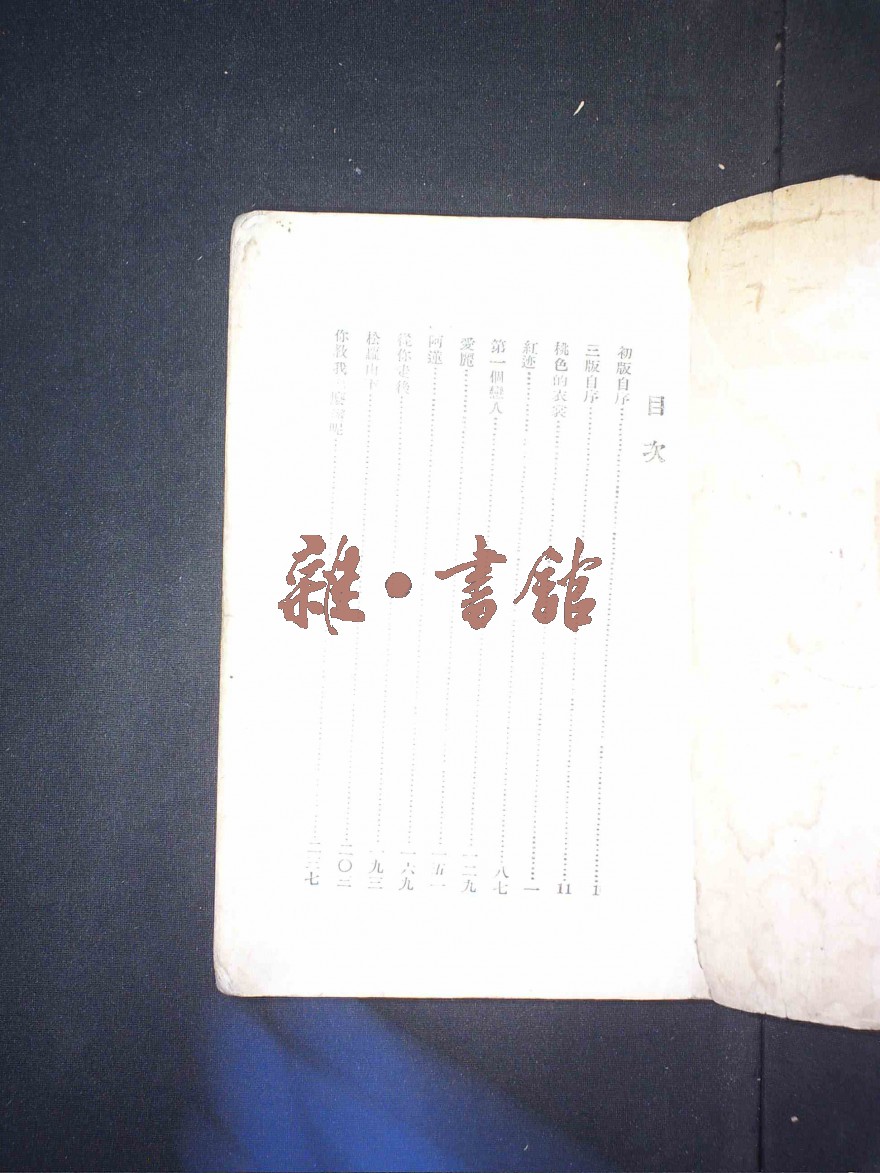 目次
初版自序……1
三版自序……11
桃色的衣裳……一
紅迹……八七
第一個戀人……一二九
愛麗……一五一
阿蓮……一六九
從你走後……一九三
松蘿山下……二〇二
你教我麼呢……二三七
雜•書館